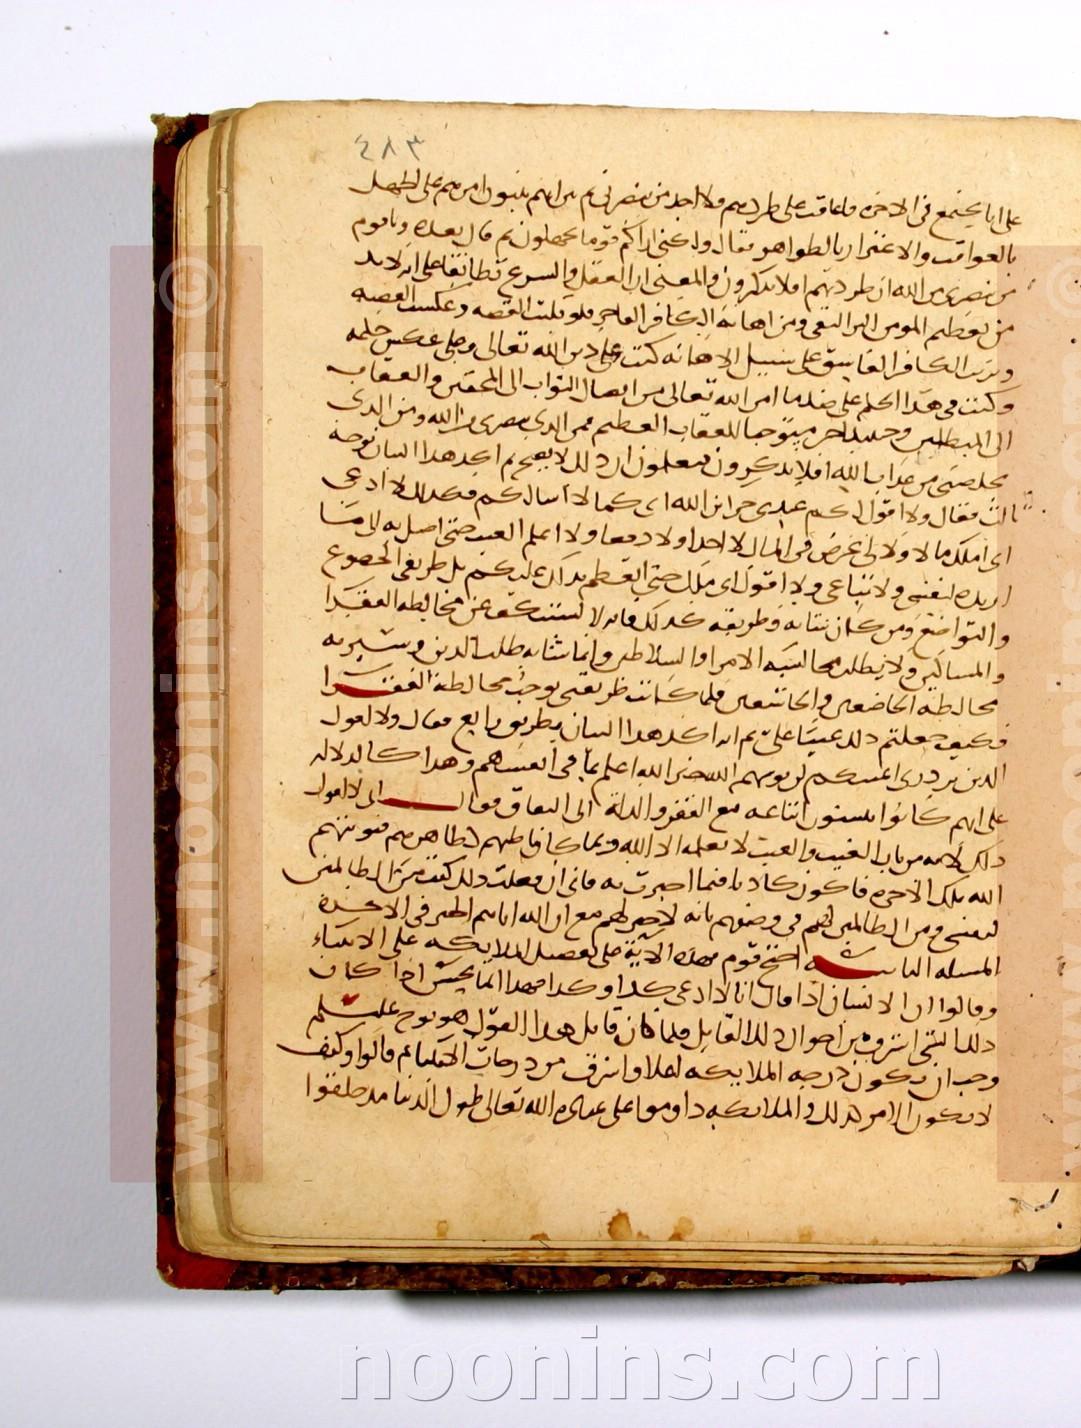 ٤٨٣
على انا نجتمع في الاخره فاعاقب على طردهم فلا اجد من ينصرني ثم بين انهم يبنون امرهم على الجهل
بالعواقب والاغترار بالظواهر فقال ولكني اراكم قوما تجهلون ثم قال بعده ويا قوم
من ينصرني من الله ان طردتهم افلا تذكرون والمعنى ان العقل والشرع تطابقا على انه لا بد
من تعظيم المومن البر التقي ومن اهانة الكافر الفاجر فلو قلبت القصه وعكست القضيه
وقربت الكافر الفاسق على سبيل كنت على ضد دين الله تعالى وعلى عكس حكمه
وكنت في هذا الحكم على ضد ما امر الله تعالى من ايصال الثواب الى المحقين والعقاب
الى المبطلين وحينئذ اصير مستوجبا للعقاب العظيم فمن الذي ينصرني من الله ومن الذي
يخلصني من عذاب الله افلا تذكرون فتعلمون ان ذلك لا يصح ثم اكد هذا البيان بوجه
ثالث فقال ولا اقول لكم عندي خزاين الله اي كما لا اسالكم فكذلك لا ادعي
اني املك مالا ولا لي غرض في المال لا اخذا ولا دفعا ولا اعلم الغيب حتى اصل به الى ما
اريده لنفسي ولاتباعي ولا اقول اني ملك حتى اتعظم بذلك عليكم بل طريقي الخضوع
والتواضع ومن كان شانه وطريقه كذلك فانه لا يستنكف عن مخالطه الفقرا
والمساكين ولا يطلب مجالسه الامرا والسلاطين وانما شانه طلب الدين وسيرته
مخالطه الخاضعين والخاشعين فلما كانت طريقتي توجب مخالطة الفقرا
فكيف جعلتم ذلك عيبا علي ثم انه اكد هذا البيان بطريق رابع فقال ولا اقول
للذين تزدري اعينكم لن يوتيهم الله خيرا الله اعلم بما في انفسهم وهذا كالدلاله
على انهم كانوا ينسبون اتباعه مع الفقر والذلة الى النفاق فقال اني لا اقول
ذلك لانه من باب الغيب والغيب لا يعلمه الا الله وربما كان باطنهم كظاهرهم فيوتيهم
الله ملك الاخره فاكون كاذبا فيما اخبرت به فاني ان فعلت ذلك كنت من الظالمين
لنفسي ومن الظالمين لهم في وصفهم بانه لا خير لهم مع ان الله اتاهم الخير في الاخرة
المسله الثانيه احتج قوم بهذه الاية على تفضيل الملايكه على الانبياء
وقالوا ان الانسان اذا قال انا لا ادعي كذا وكذا فهذا انما يحسن اذا كان
ذلك الشي اشرف من احوال ذلك القايل فلما كان قايل هذا القول هو نوح عليه السلم
وجب ان تكون درجه الملايكه اعلا واشرف من درجات الحكماء ثم قالوا وكيف
لا يكون الامر كذلك والملايكه داوموا على عباده الله تعالى طول الدنيا مذ خلقوا
www.noonins.com
©
noonins.com